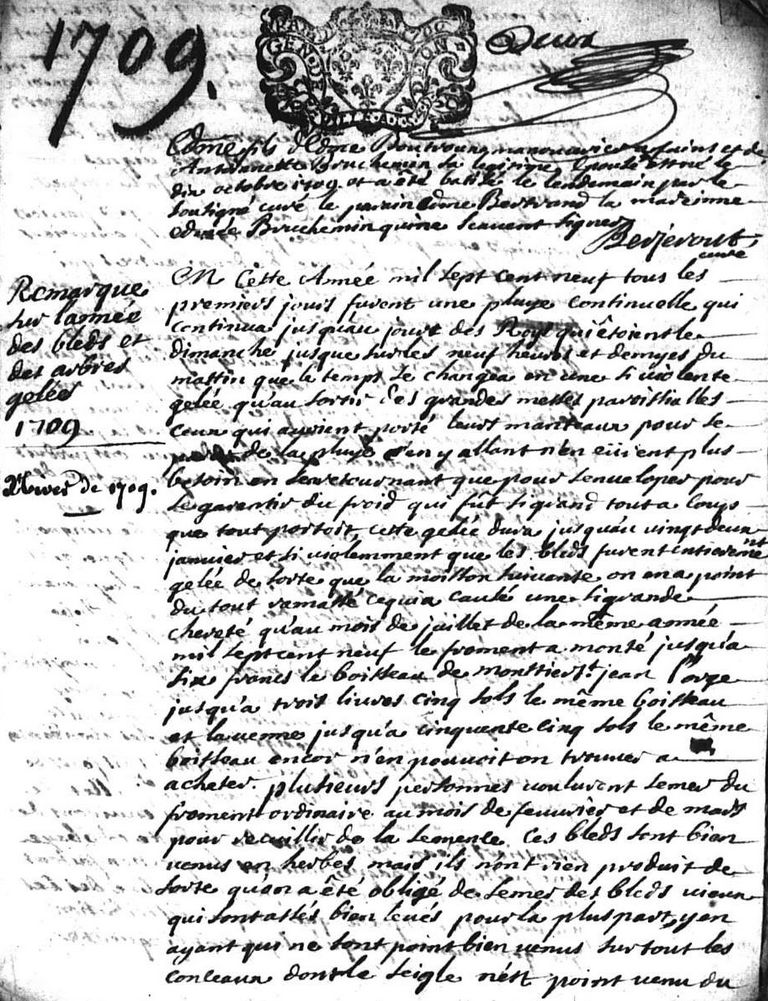 1709.
GEN DE
Edme fils d'Edme Boutrouz manouvrier et de
Antoinette Bruchemin sa legitime Epouse est né le
dix octobre 1709. et a été batisé le lendemain par le
soutigné curé le parain Edme Bertrand la mareinne
Edmée Bruchemin qui ne scavent signer
curé
Remarque
sur lamée
des bleds et
des arbres
gelées
1709
Hiver de 1709.
En Cette Année mil sept cent neuf tous les
premiers jours furent une pluye continuelle qui
continua jusqu'au jour des Roys qui êtoient le
dimanche jusque sur les neuf heures et demyes du
mattin que le temps se changea en une si violente
gelée qu'au sortir des grandes messes paroissialles
ceux qui avoient porté leurs manteaux pour se
de la pluye s'en y allant n'en eüient plus
besoin en sen retournant que pour senveloper pour
se garentir du froid qui fût si grand tout a coup
que tout portoit, cette gelée dura jusqu'au vingt deux
janvier et si violemment que les bleds furent entierement
gelée de sorte que la moisson suivante on en a point
du tout ramassé ce qui a causé une si grande
cherté qu'au mois de juillet de la même année
mil sept cent neuf le froment a monté jusqu'a
six francs le boisseau de monttier St jean l'orge
jusqu'a trois livres cinq sols le même boisseau
et lavenne jusqu'a cinquente cinq sols le même
boisseau encor n'en pouvoit on trouver a
acheter. plusieurs personnes voulurent semer du
froment ordinaire au mois de fevrier et de mars
pour recuillir de la semence Ces bleds sont bien
venus en herbes mais ils n'ont rien produit de
sorte qu'on a été obligé de semer des bleds vieux
qui sont assés bien levés pour la pluspart, y en
ayant qui ne sont point bien venus sur tout les
conceaux dont le seigle n'est point venu du